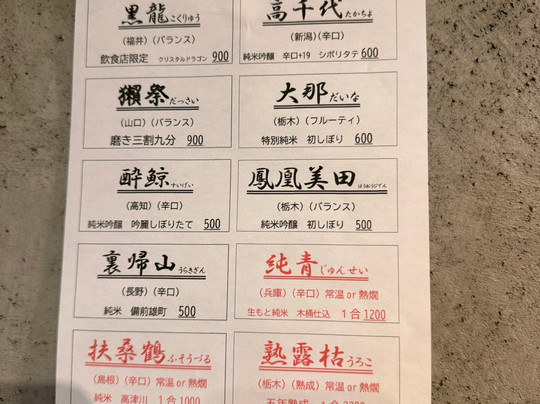 黒龍 こくりゅう
(福井)(バランス)
飲食店限定 クリスタルドラゴン 900
高千代 たかちよ
(新潟)(辛口)
純米吟醸 辛口+19 シボリタテ 600
獺祭 だっさい
(山口)(バランス)
磨き三割九分 900
大那 だいな
(栃木)(フルーティ)
特別純米 初しぼり 600
酔鯨 すいげい
(高知)(辛口)
純米吟醸 吟麗しぼりたて 500
鳳凰美田 ほうおうびでん
(栃木)(バランス)
純米吟醸 初しぼり 500
裏帰山 うらきざん
(長野)(辛口)
純米 備前雄町 500
純青 じゅんせい
(兵庫)(辛口)常温or熱燗
生もと純米 木桶仕込 1合1200
扶桑鶴 ふそうづる
(島根)(辛口)常温or熱燗
純米 高津川 1合1000
熟露枯 うろこ
(栃木)(熟成)常温or熱燗
五年熟成 1合